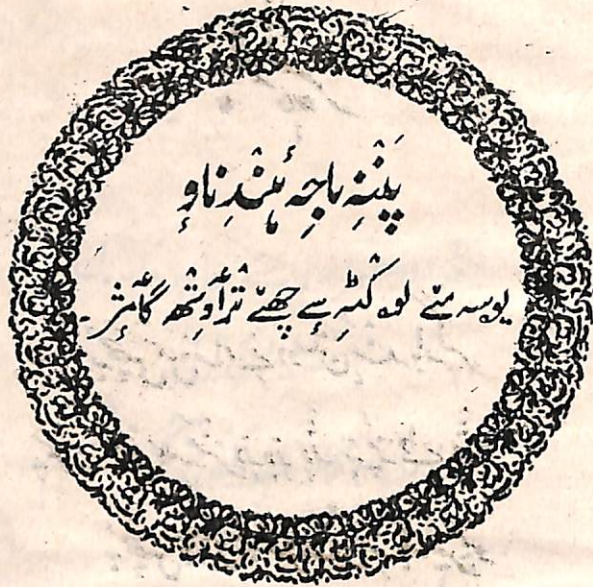 پَننِہ باجِہ ہٕنٛدِ ناوٕ
یوسہ مےٚ لۄکٹہٕ ہے چھنےٚ ترٛأوِتھ گأمٕژ۔